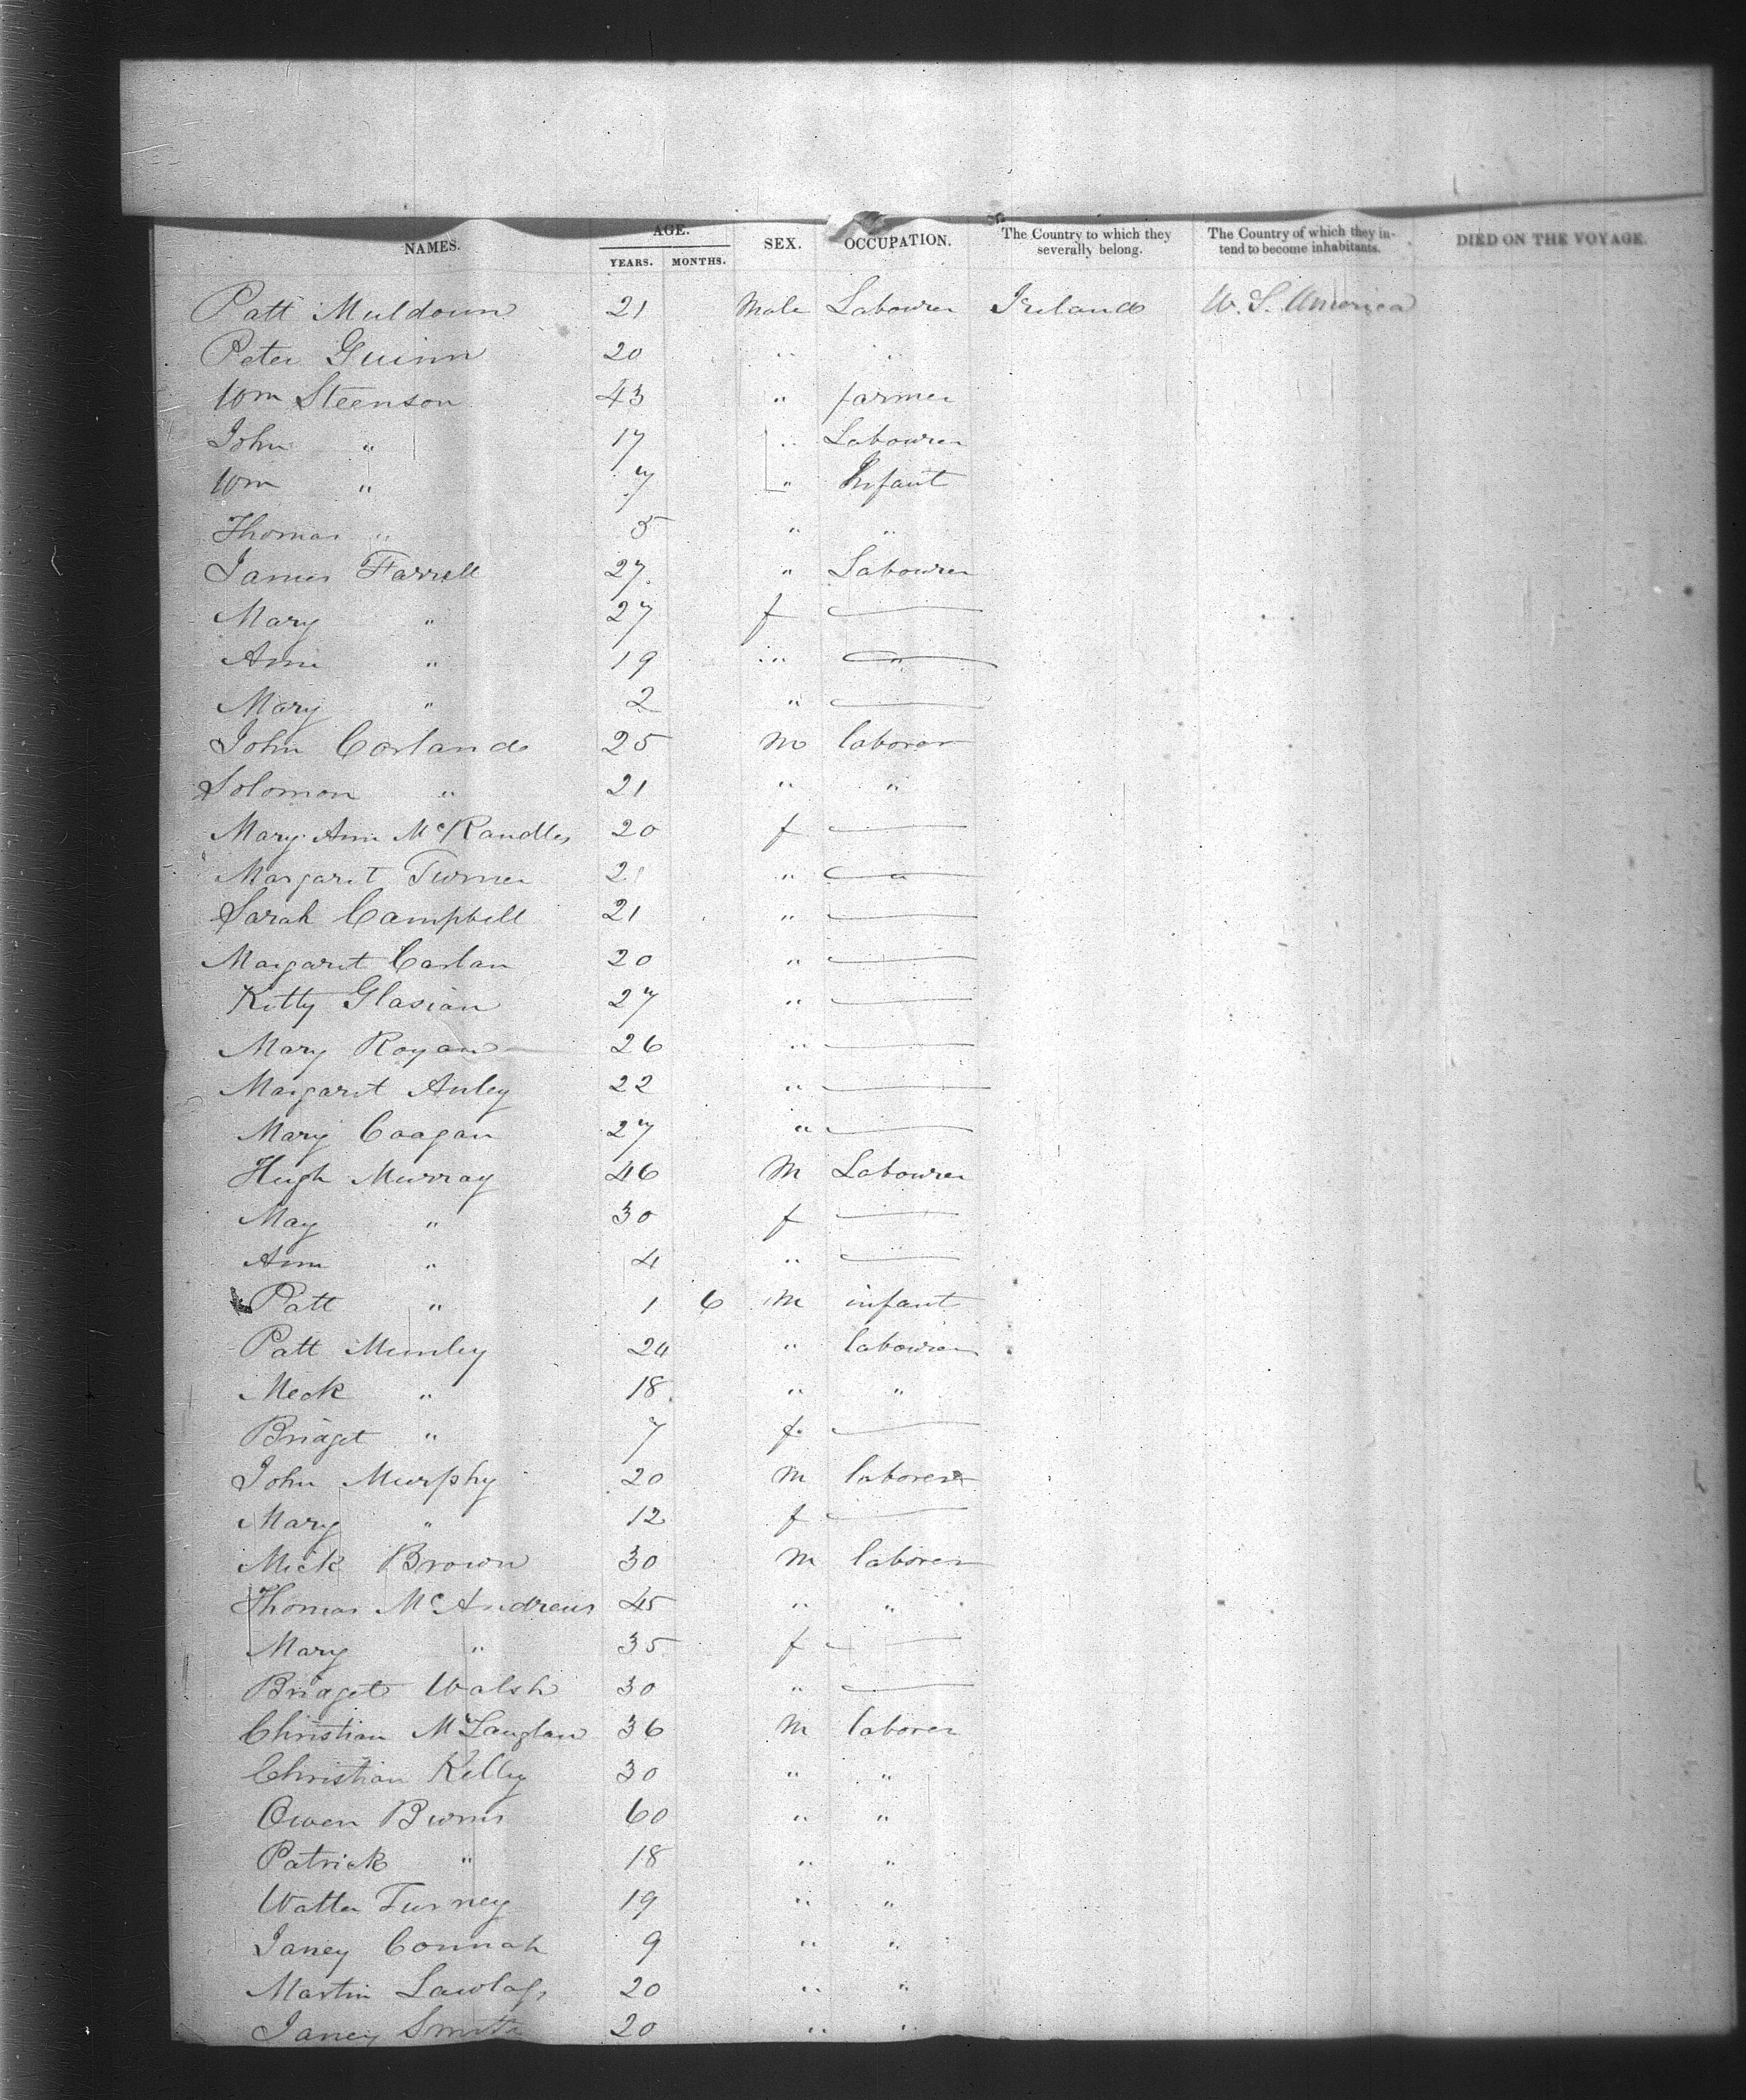 NAMES. AGE. YEARS. MONTHS. SEX. OCCUPATION. The Country to which they severally belong. The Country of which they intend to become inhabitants. DIED ON THE VOYAGE.
Patt Muldoun 21 Male Labourer Ireland U. S. America
Peter Guinn 20 " "
Wm Steenson 43 " farmer
John " 17 " Labourer
Wm " 7 " Infant
Thomas " 5 " "
James Farrell 27 " Labourer
Mary " 27 f —
Ann " 19 " — " —
Mary " 2 " —
John Corland 25 M laborer
Solomon " 21 " "
Mary Ann McKandles 20 f —
Margaret Turner 21 " — " —
Sarah Campbell 21 " —
Margaret Carlan 20 " —
Kitty Glasian 27 " —
Mary Rogan 26 " —
Margaret Anley 22 " —
Mary Coogan 27 " —
Hugh Murray 46 M Labourer
May " 30 f —
Ann " 4 " —
Patt " 1 6 M infant
Patt Munley 24 " labourer
Meck " 18 " "
Bridget " 7 f —
John Murphy 20 M laborer
Mary " 12 f —
Mick Brown 30 M laborer
Thomas McAndrews 45 " "
Mary " 35 f —
Bridget Walsh 30 " —
Christian McLauglan 36 M laborer
Christian Kelly 30 " "
Owen Burns 60 " "
Patrick " 18 " "
Walter Turney 19 " "
Janey Connah 9 " "
Martin 20 " "
Janey Smith 20 " "